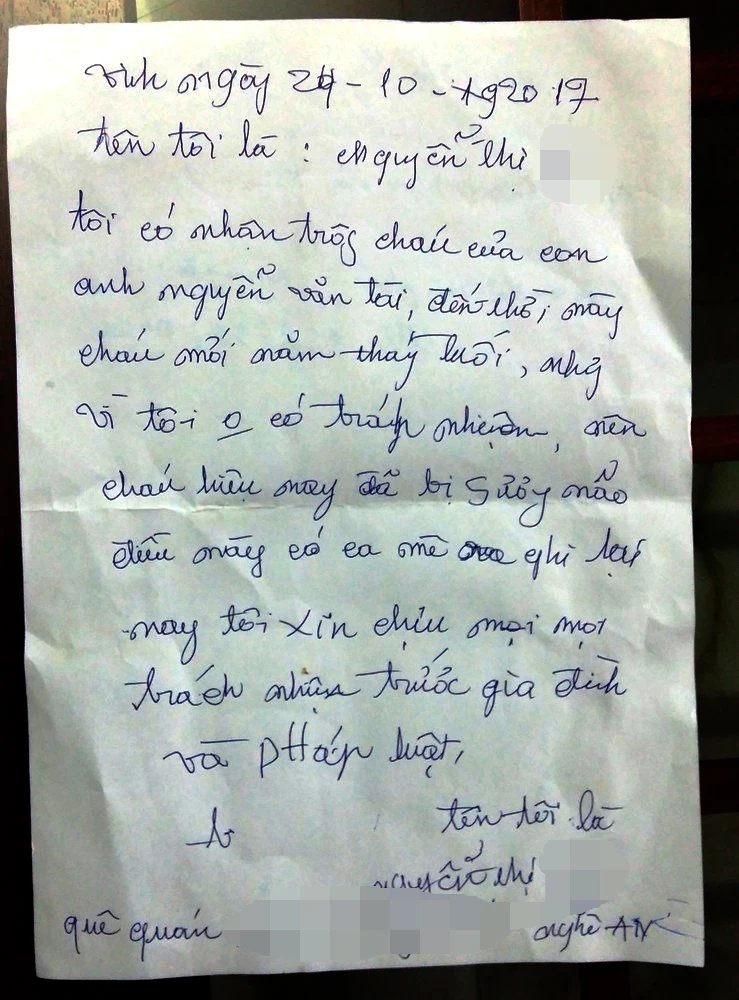 vinh ngày 24 - 10 - 2017
tên tôi là : nguyễn thị
tôi có nhận trông cháu của con
anh nguyễn văn tài, đến thời này
cháu mới năm tháy tuổi, nhg
vì tôi o có trách nhiệm, nên
cháu hiện nay đã bị Sưởy não
điều này có ca mê ghi lại
nay tôi xin chịu mọi mọi
trách nhiệm trước gia đình
và pHáp luật,
tên tôi là
nguyễn thị
quê quán nghệ AN